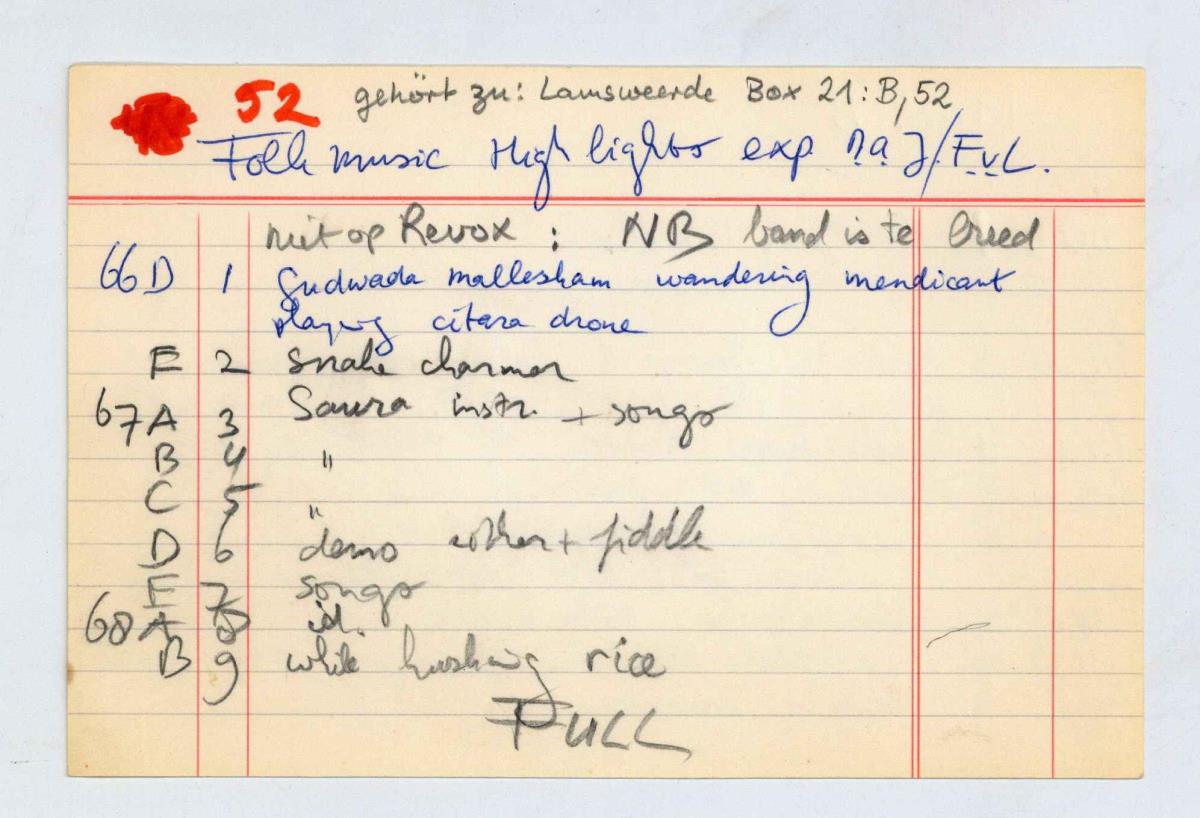 52 gehört zu: Lamsweerde Box 21: B, 52
Folk music Highlights exp. N.a.J/F.v.L.
niet op Revox : NB band is te breed
66 D 1 Gudwada mallesham wandering mendicant
playing citara drone
E 2 Snake charmer
67 A 3 Saura instr. + songs
B 4 "
C 5 "
D 6 demo + fiddle
E 7 songs
68 A 8 id.
B 9 while husking rice
FULL